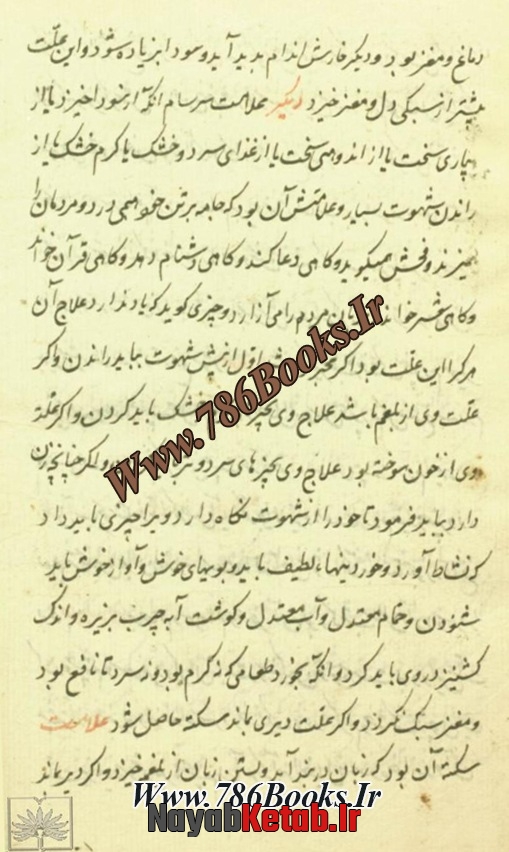 دماغ و مغز بود و دیگر خارش اندام پدید آید و سودا زیاده شود و این علّت
بیشتر از سبکی دل و مغز خیزد دیگر علامت سرسام آنکه از سودا خیزد یا از
بیماری سخت یا از اندوهی سخت یا از غذای سرد و خشک یا کرم خشک یا از
راندن شهوت بسیار و علامتش آن بود که جامه بر تن خود همی درد و مردمان را
میزند و فحش میکوید و کاهی دعا کند و کاهی دشنام دهد و کاهی قرآن خواند
و کاهی شعر خواند مردم را می آزارد و چیزی کوید که یاد ندارد علاج آن
هر کرا این علّت بود اکر اول از پیش شهوت بباید راندن و اکر
علّت وی از بلغم باشد علاج وی خشک باید کردن و اکر علّة
وی از خون سوخته بود علاج وی بچیزهای سرد و تر و اکر چنانچه زن
دارد بباید فرمود تا خود را از شهوت نکاه دارد ویرا چیزی باید داد
که نشاط آورد و خوردنیهاء لطیف باید و بویهای خوش و آواز خوش باید
شنودن و حمام معتدل و آب معتدل و کوشت آبه چرب بزیره و اندک
کشنیز در وی باید کرد و آنکه بخورد طعامی که نه کرم بود و نه سرد تا نافع بود
و مغز سبک نکردد و اکر علّت دیری بماند سکته حاصل شود علامت
سکته آن بود که زبان در بند آید و بستن زبان از بلغم خیزد و اکر دیر بماند
Www.786Books.Ir
Www.786Books.Ir
NayabKetab.Ir